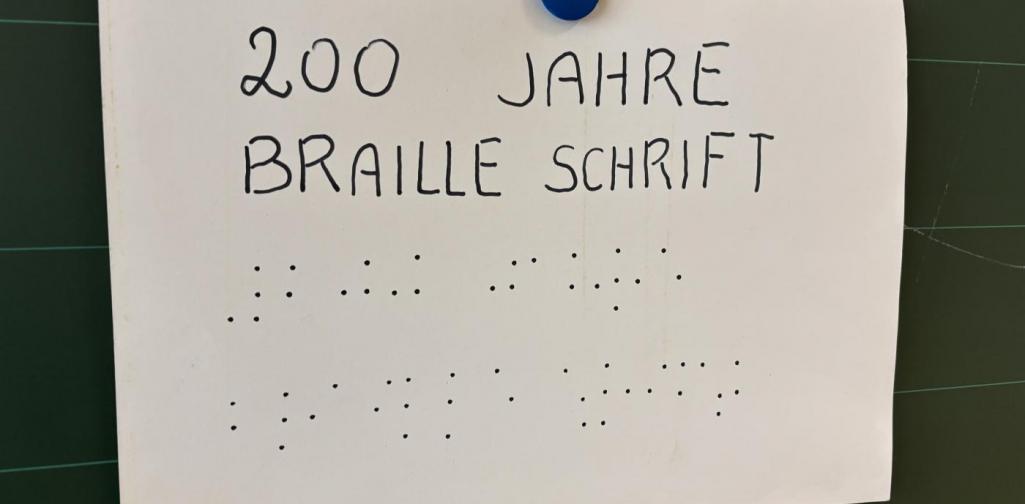 200 JAHRE
BRAILLE SCHRIFT
⠼⠃⠚⠚ ⠚⠁⠓⠗⠑
⠃⠗⠁⠊⠇⠇⠑ ⠱⠗⠊⠋⠞